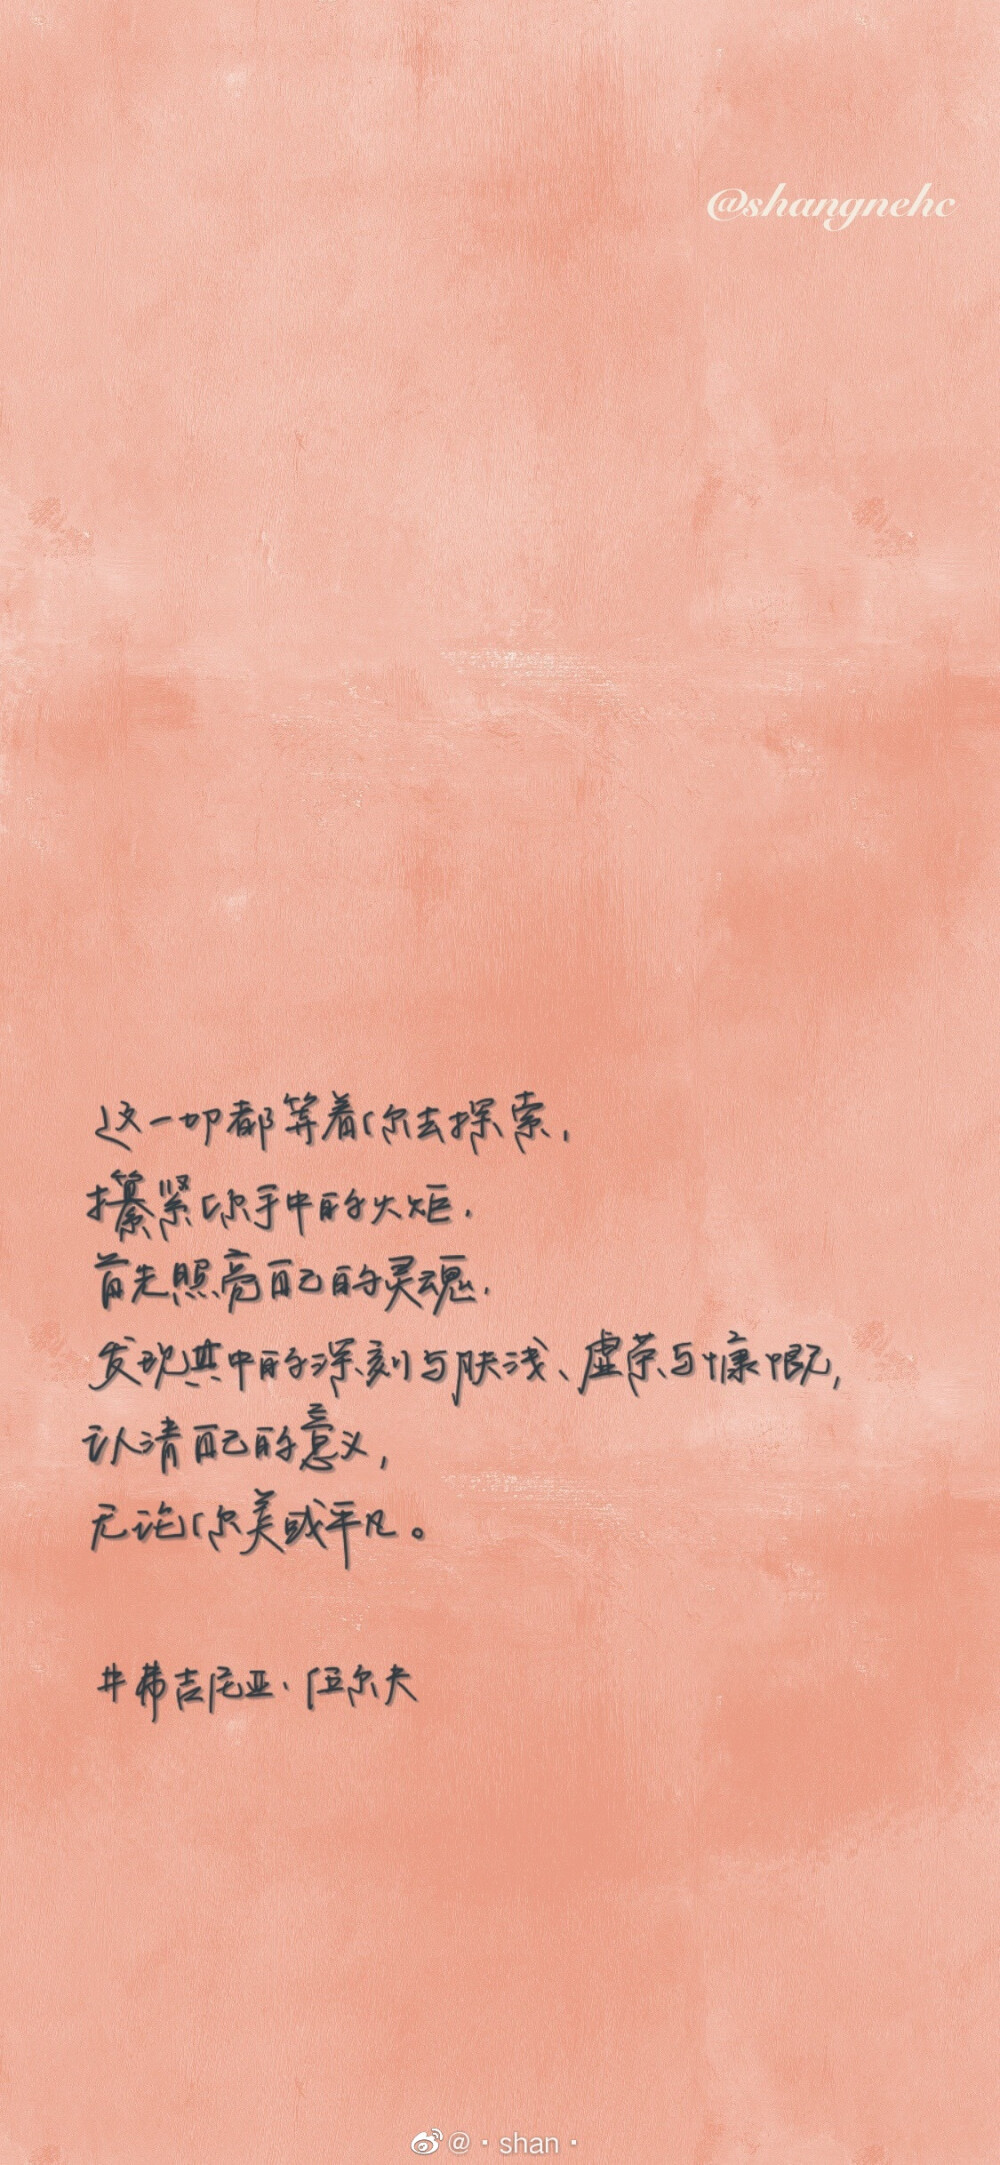 @shangnehc
这一切都等着你去探索,
攥紧你手中的火炬.
首先照亮自己的灵魂.
发现其中的深刻与肤浅、虚荣与慷慨,
认清自己的意义,
无论你美或平凡。
#弗吉尼亚·伍尔夫
@·shan·